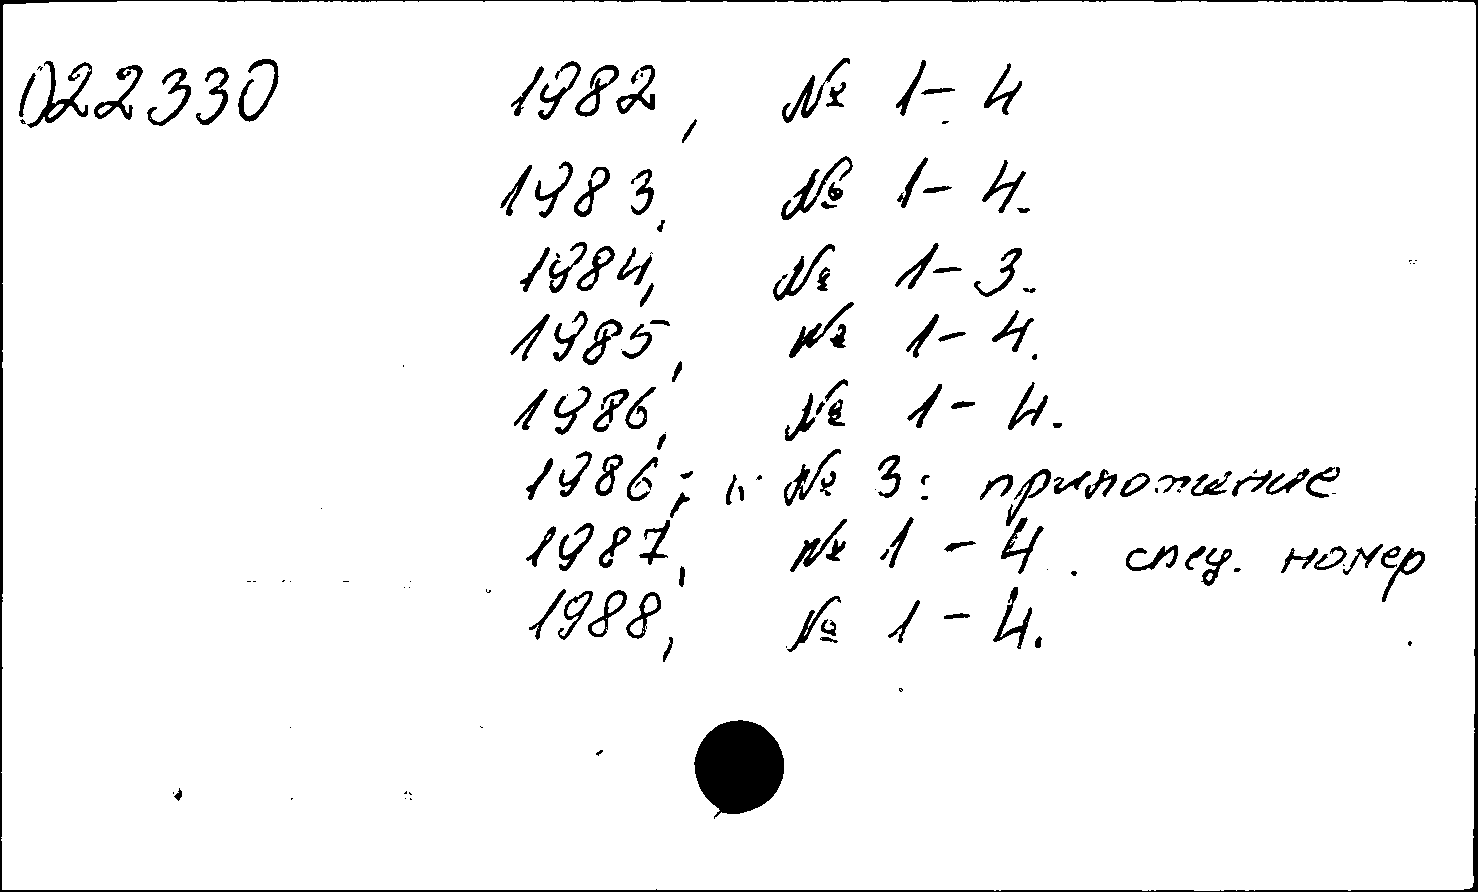 022330 1982, № 1-4
1983, № 1-4.
1984, № 1-3.
1985, № 1-4.
1986, № 1-4.
1986, № 3: приложение
1987, № 1-4. спец. номер
1988, № 1-4.